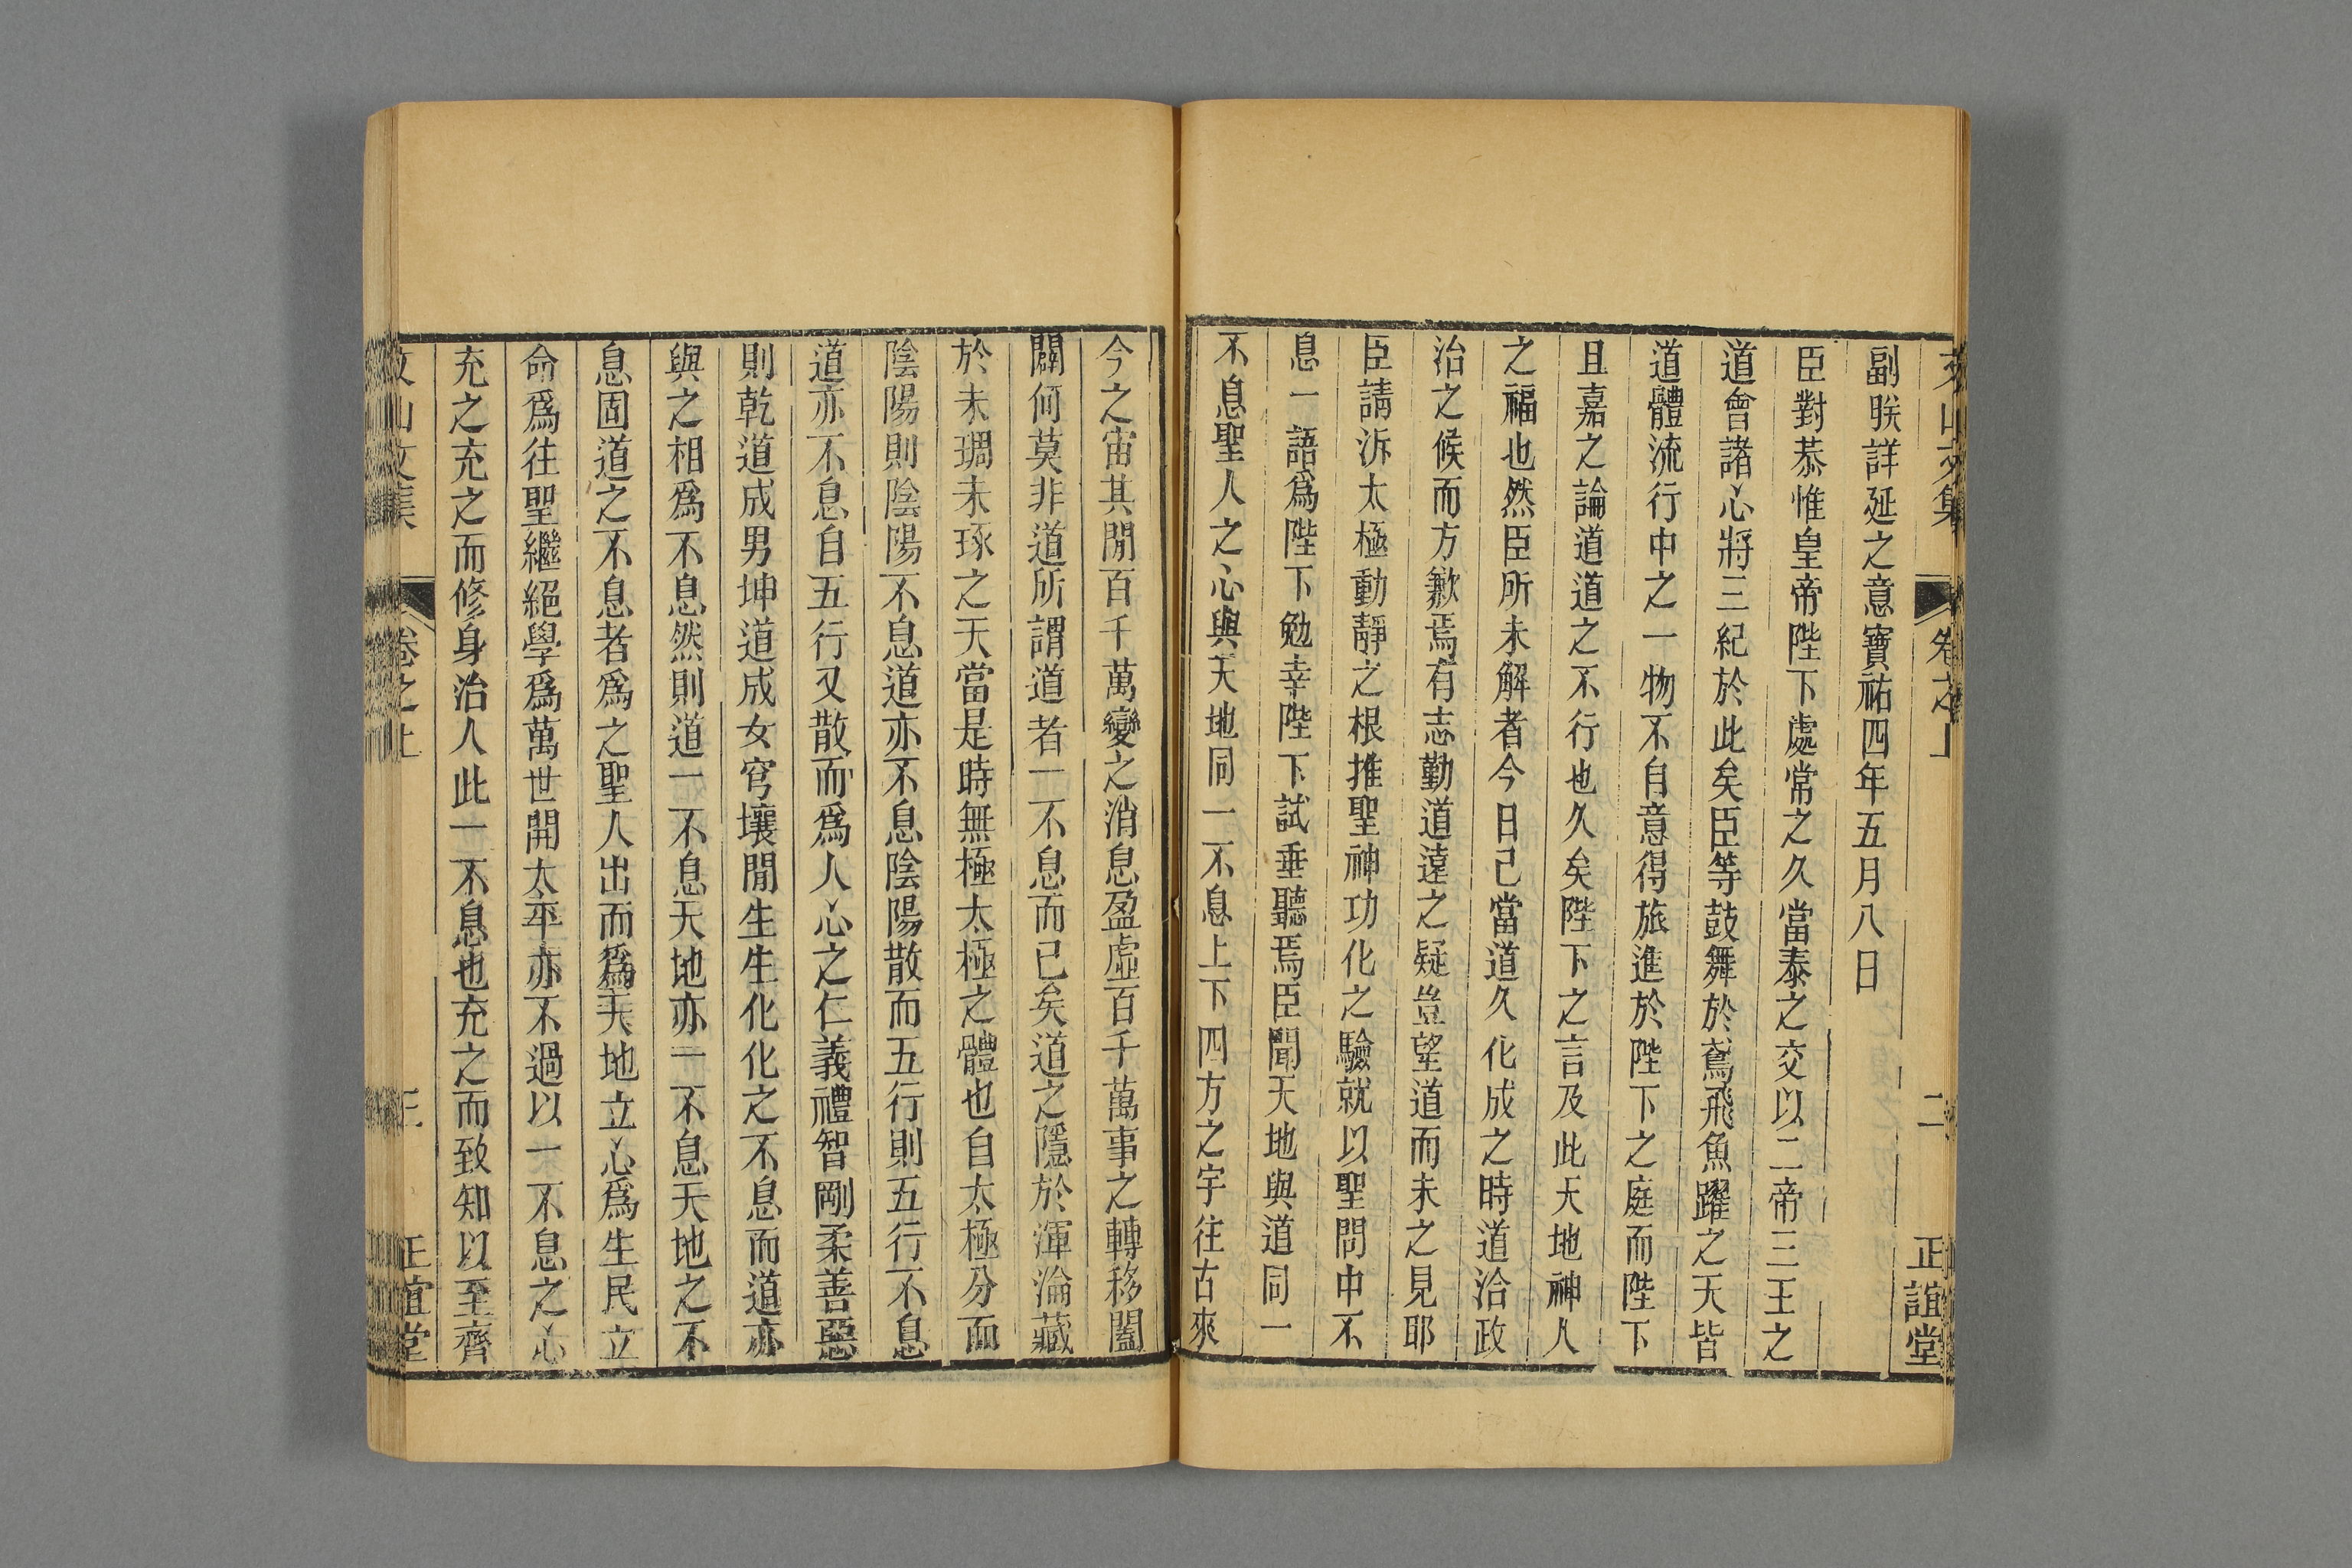 文山文集 卷之上 二 正誼堂
副朕詳延之意寶祐四年五月八日
臣對恭惟皇帝陛下處常之久當泰之交以二帝三王之
道會諸心將三紀於此矣臣等鼓舞於鳶飛魚躍之天皆
道體流行中之一物不自意得旅進於陛下之庭而陛下
且嘉之論道道之不行也久矣陛下之言及此天地神人
之福也然臣所未解者今日已當道久化成之時道洽政
治之候而方歉焉有志勤道遠之疑豈望道而未之見耶
臣請泝太極動靜之根推聖神功化之驗就以聖問中不
息一語爲陛下勉幸陛下試垂聽焉臣聞天地與道同一
不息聖人之心與天地同一不息上下四方之宇往古來
今之宙其閒百千萬變之消息盈虛百千萬事之轉移闔
闢何莫非道所謂道者一不息而已矣道之隱於渾淪藏
於未琱未琢之天當是時無極太極之體也自太極分而
陰陽則陰陽不息道亦不息陰陽散而五行則五行不息
道亦不息自五行又散而爲人心之仁義禮智剛柔善惡
則乾道成男坤道成女穹壤閒生生化化之不息而道亦
與之相爲不息然則道一不息天地亦一不息天地之不
息固道之不息者爲之聖人出而爲天地立心爲生民立
命爲往聖繼絕學爲萬世開太平亦不過以一不息之心
充之充之而修身治人此一不息也充之而致知以至齊
文山文集 卷之上 正誼堂